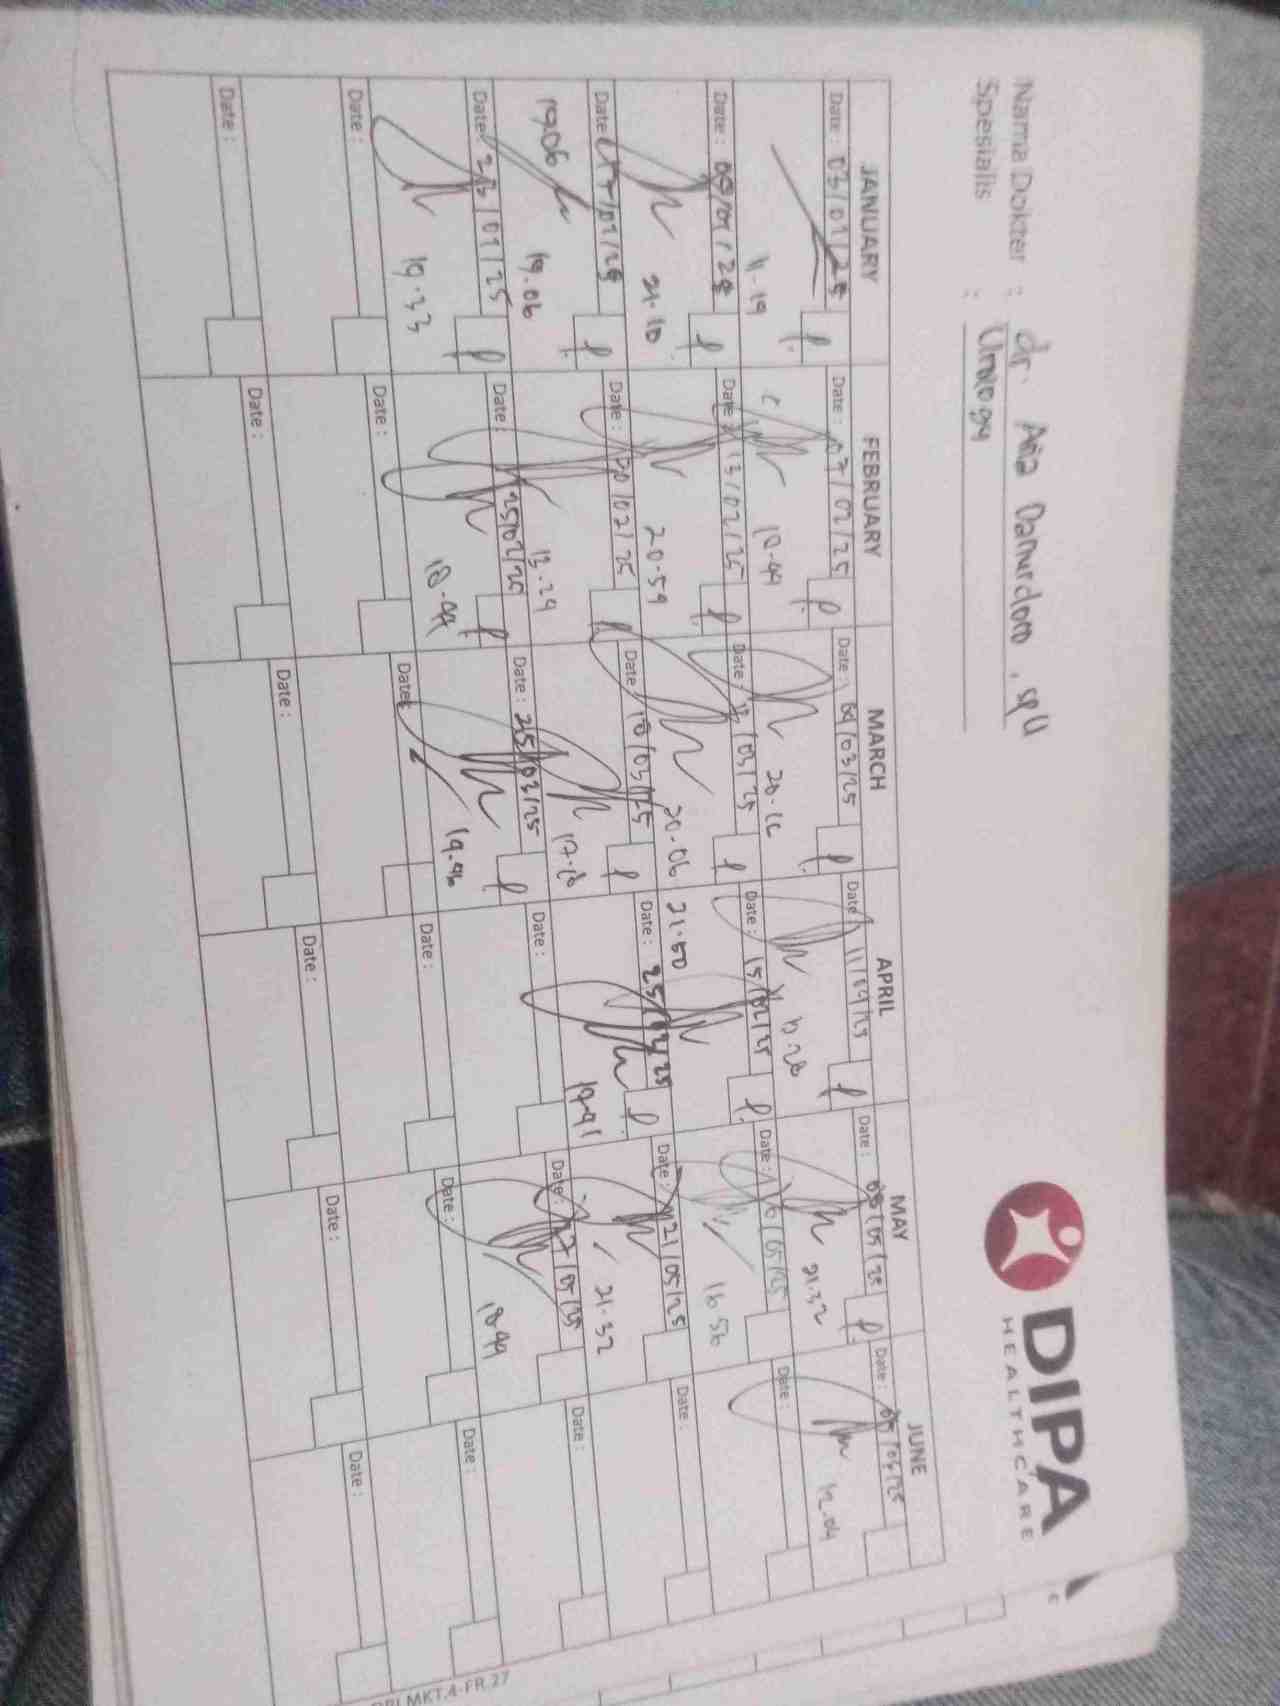 Nama Dokter : dr. Aria Danurdoro, SpU
Spesialis : Urology
DIPA
HEALTHCARE
JANUARY FEBRUARY MARCH APRIL MAY JUNE
Date : 03/01/25 Date : 07/02/25 Date : 04/03/25 Date : 11/04/25 Date : 08/05/25 Date : /25
11.19 18.44 20.12 21.32 12.04
Date : Date : 13/02/25 Date : 12/03/25 Date : 15/02/25 Date : 16/05/25 Date :
21.10 20.59 20.06 21.50 16.56
Date : 17/01/25 Date : 20/02/25 Date : 18/03/25 Date : 25/02/25 Date : 21/05/25 Date :
19.06 19.06 13.29 17.18 19.41 21.32
Date : 23/01/25 Date : 25/02/25 Date : 25/03/25 Date : Date : 27/05/25 Date :
19.33 18.44 19.46 18.44
Date : Date : Date : Date : Date : Date :
Date : Date : Date : Date : Date : Date :
MKT.4-FR.27